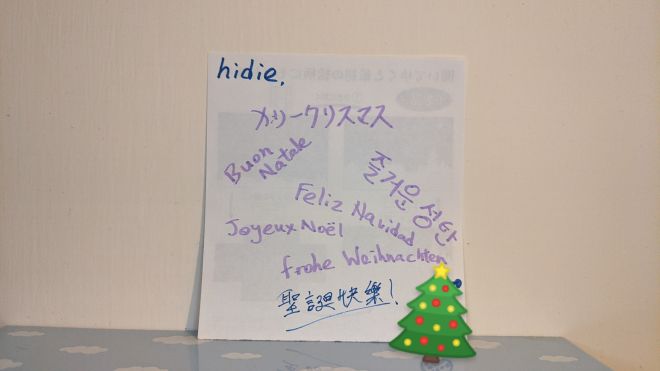 hidie.
メリークリスマス
Buon
Natale
즐거운 성탄
Feliz Navidad
Joyeux Noël
frohe Weihnachten
聖誕快樂!